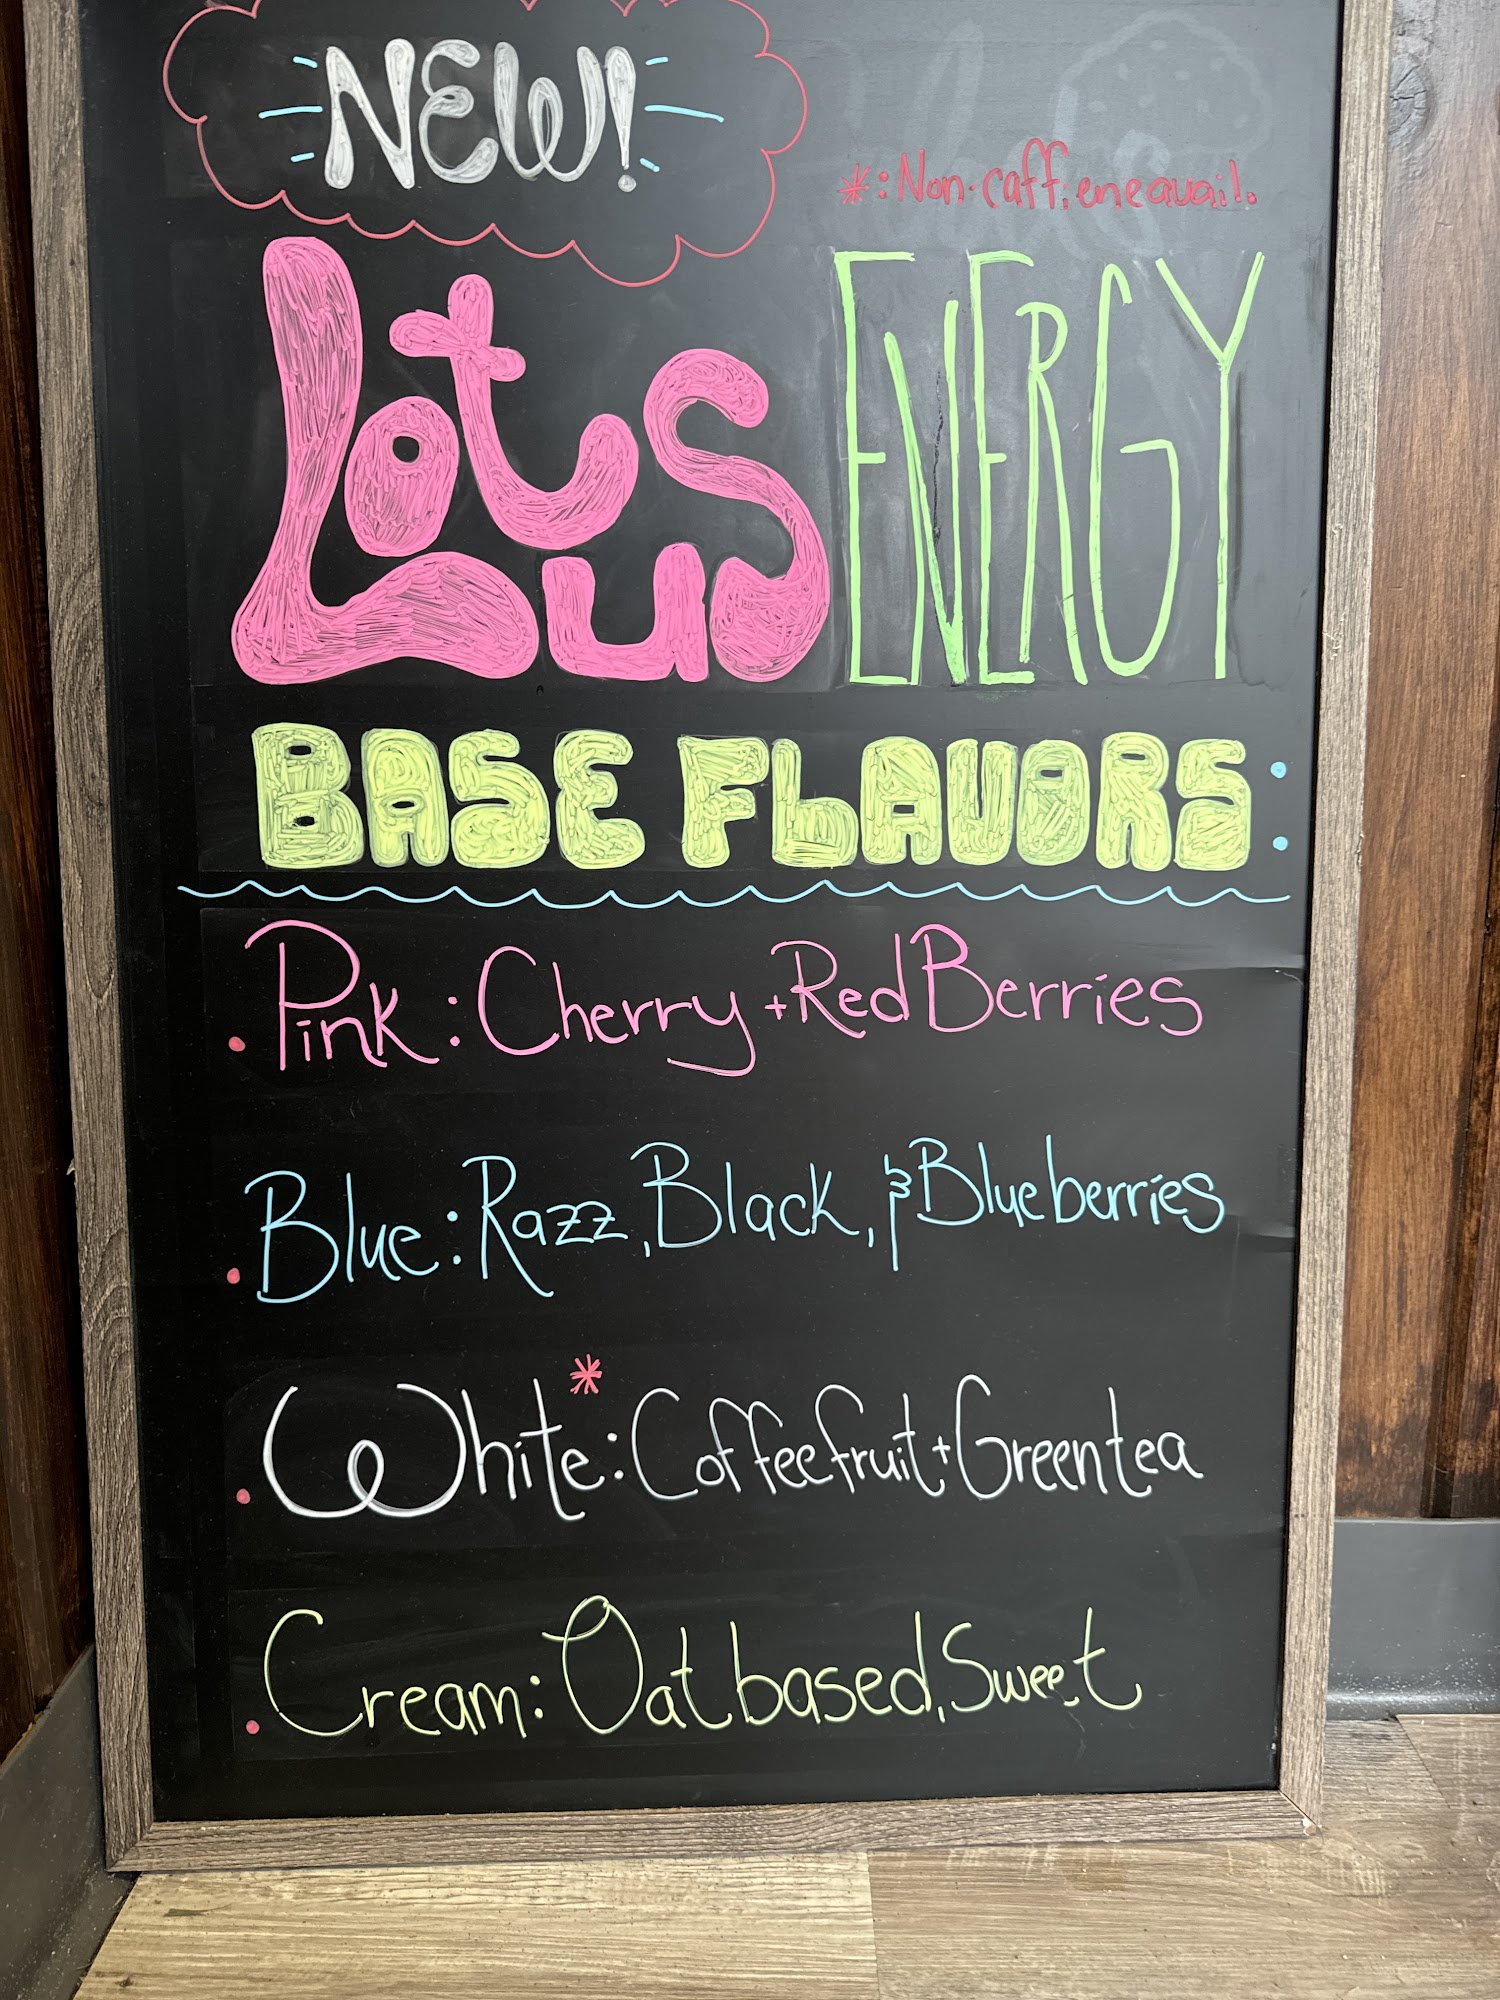 NEW!
*: Non-caffieneavail.
Lotus ENERGY
BASE FLAVORS:
• Pink: Cherry + Red Berries
• Blue: Razz, Black, & Blueberries
• White*: Coffee fruit + Green tea
• Cream: Oat based, Sweet